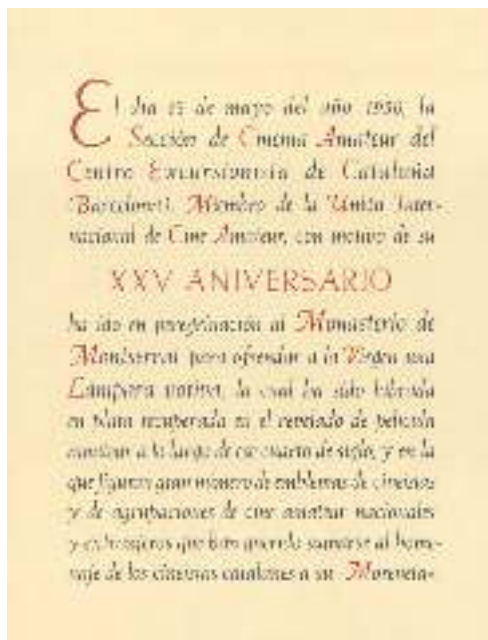 El día 15 de mayo del año 1956, la
Sección de Cinema Amateur del
Centro Excursionista de Cataluña
(Barcelona), Miembro de la Unión Inter-
nacional de Cine Amateur, con motivo de su
XXV ANIVERSARIO
ha ido en peregrinación al Monasterio de
Montserrat para ofrendar a la Virgen una
Lámpara votiva, la cual ha sido labrada
en plata recuperada en el revelado de película
amateur a lo largo de ese cuarto de siglo, y en la
que figuran gran número de emblemas de cineístas
y de agrupaciones de cine amateur nacionales
y extranjeros que han querido sumarse al home-
naje de los cineístas catalanes a su Moreneta.